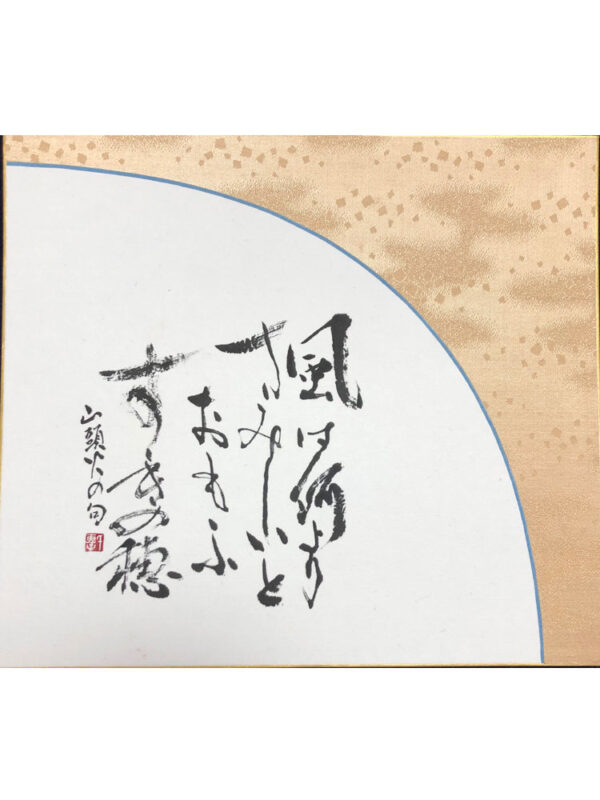 風は何より
さみしいと
おもふ
すゝきの穂
山頭火の句